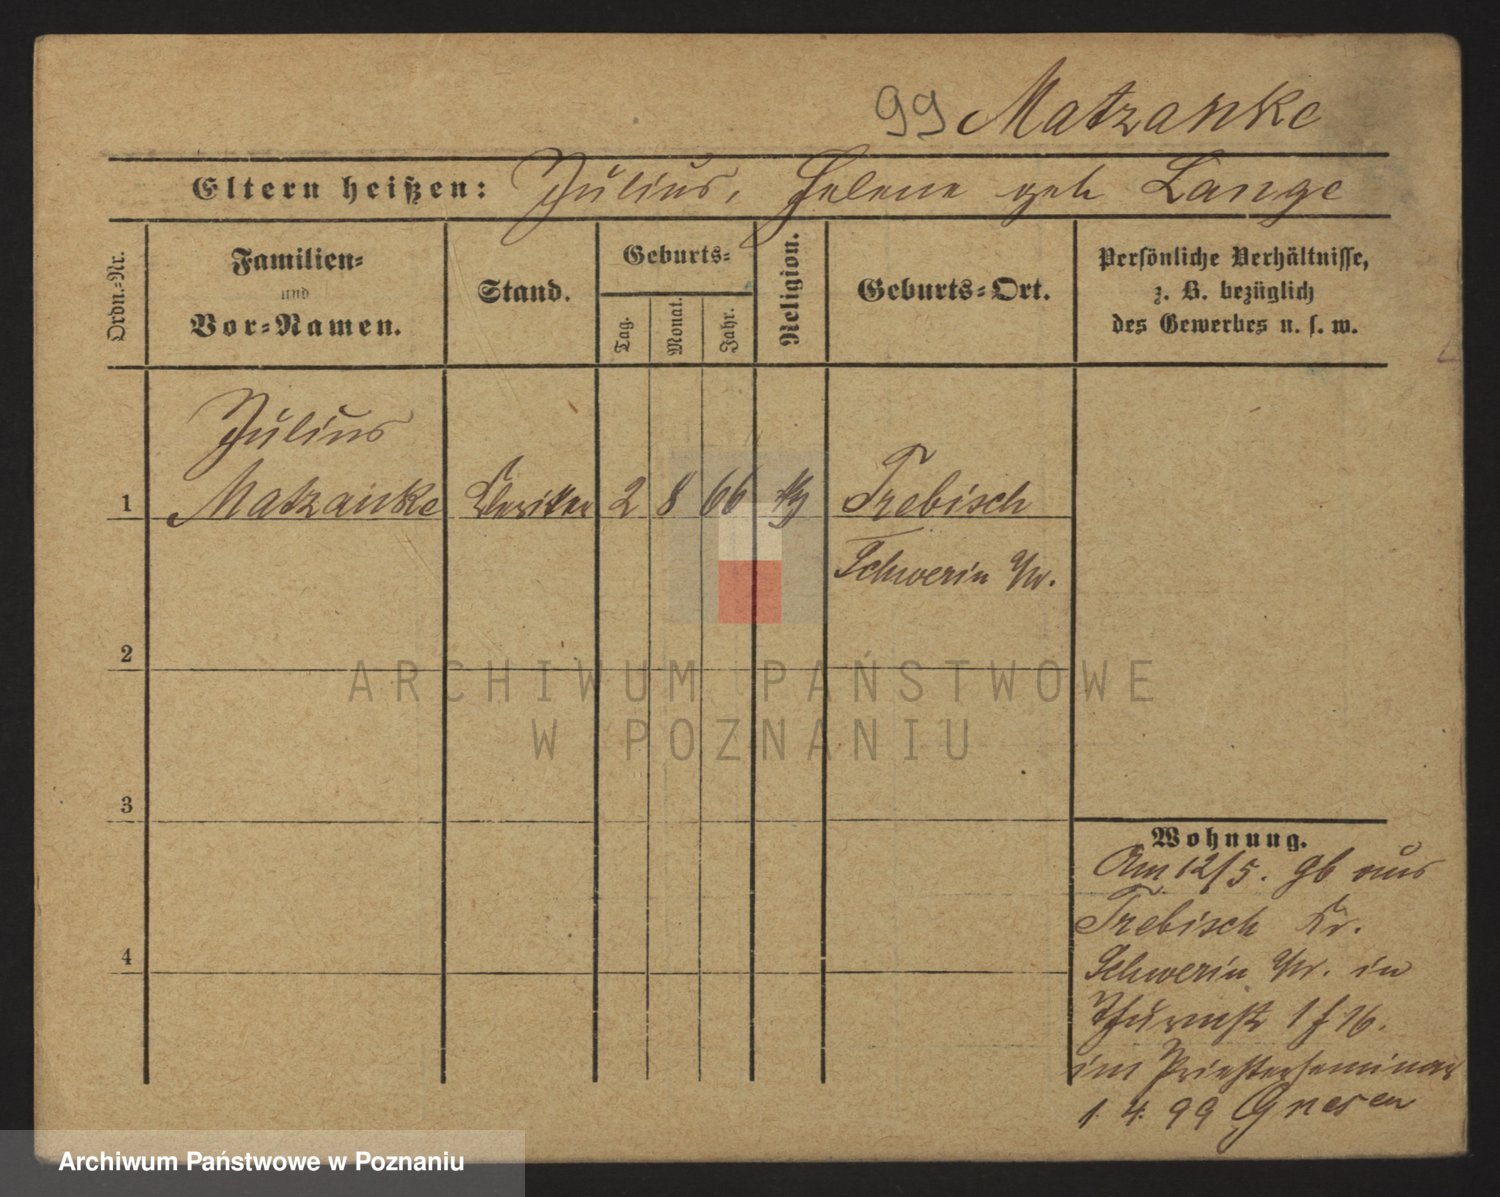 99 Matzanke
Eltern heißen: Julius, Helene geb Lange
Ordn.-Nr.
Familien-
und
Vor-Namen.
Stand.
Geburts-
Tag.
Monat.
Jahr.
Religion.
Geburts-Ort.
Persönliche Verhältnisse,
z. B. bezüglich
des Gewerbes u. s. w.
Julius
1 Matzanke Kleriker 2 8 66 Trebisch
Schwerin
2
3
4
Wohnung.
Am 12/5. 96 aus
Trebisch Kr.
Schwerin in
Thurmstr 1
im Priesterseminar
1. 4. 99 Gnesen
ARCHIWUM PAŃSTWOWE
W POZNANIU
Archiwum Państwowe w Poznaniu